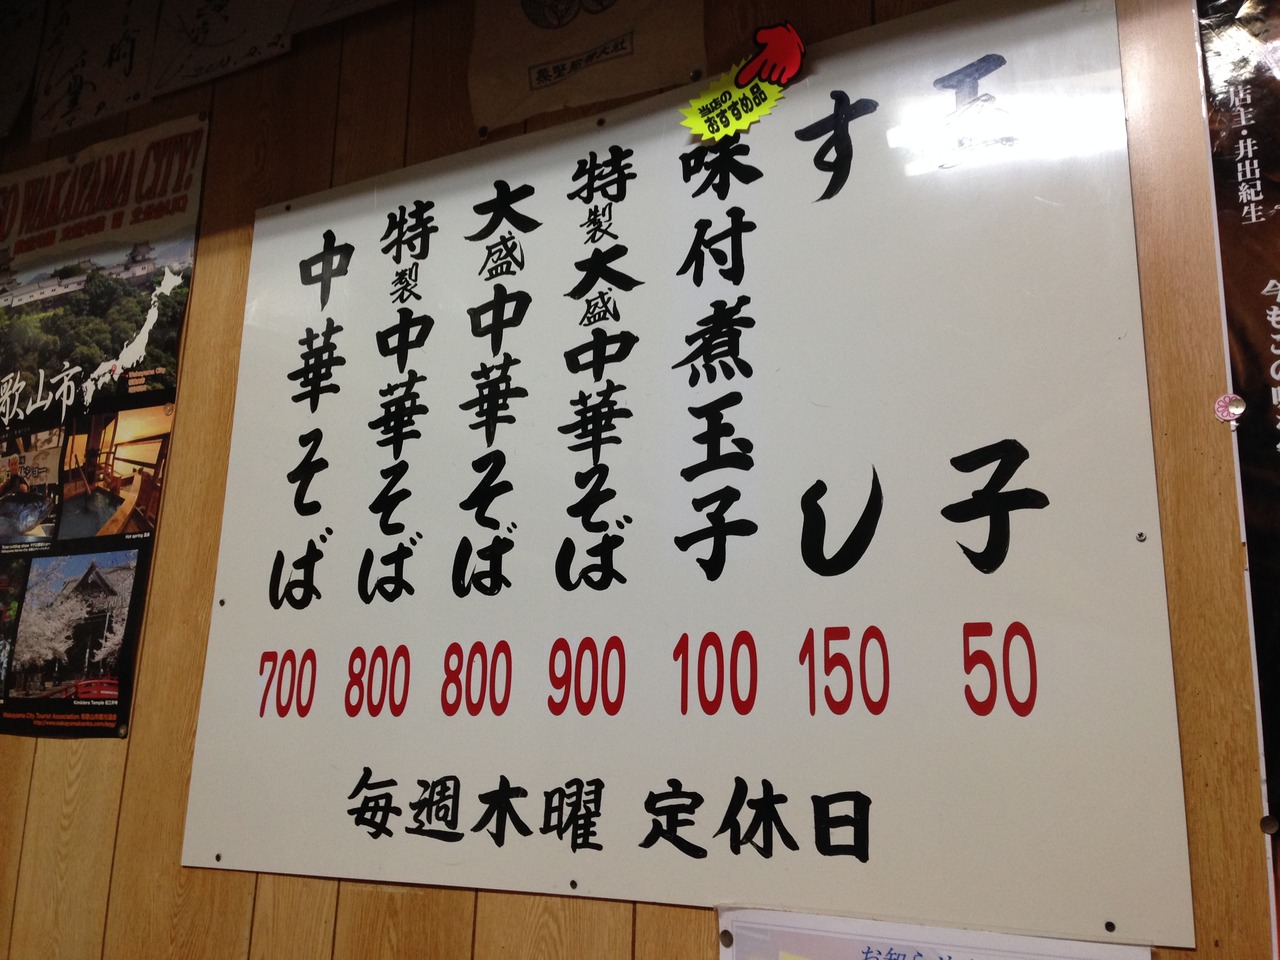 玉子 50
すし 150
当店の
おすすめ品
味付煮玉子 100
特製大盛中華そば 900
大盛中華そば 800
特製中華そば 800
中華そば 700
毎週木曜 定休日
店主・井出紀生
WAKAYAMA CITY!
歌山市
Wakayama City Tourist Association
お知らせ